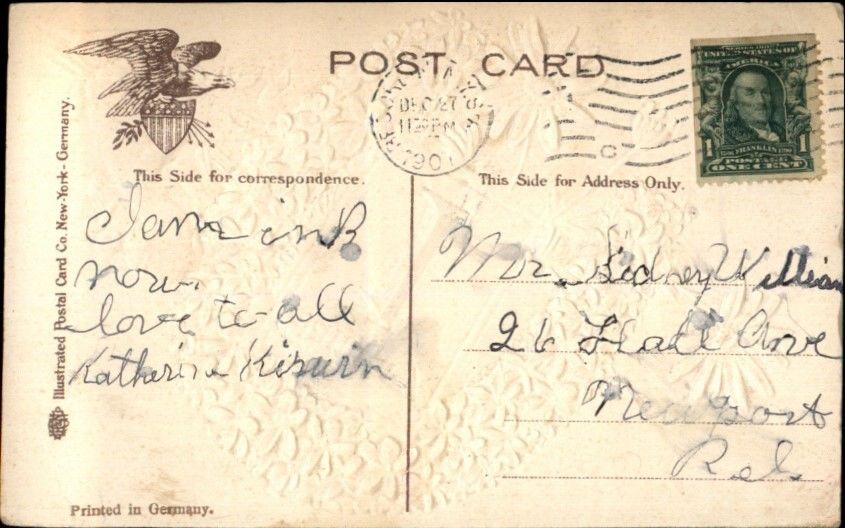 POST CARD
DEC 27
11 30 PM
190
SERIES 1902
UNITED STATES OF
AMERICA
FRANKLIN
1 1
POSTAGE
ONE CENT
This Side for correspondence.
This Side for Address Only.
Illustrated Postal Card Co. New-York - Germany.
I am in B
now.
love to all
Katherine
Mr. Sidney William
26 Hall Ave
Newport
R.I.
Printed in Germany.